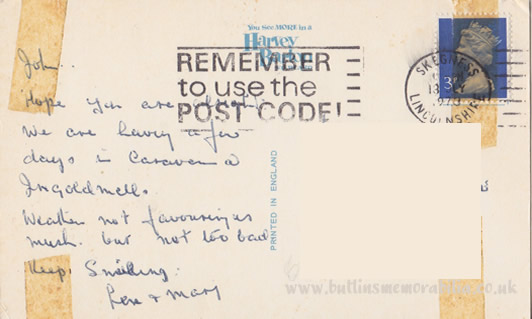 You See MORE in a
Harvey
Barton
REMEMBER
to use the
POST CODE!
SKEGNESS
LINCOLNSHIRE
3
John..
Hope you are
We are having a few
days in Caravan a
Ingoldmells.
Weather not favouring us
mush. but not too bad
Keep Smiling.
& Mary
PRINTED IN ENGLAND
www.butlinsmemorabilia.co.uk